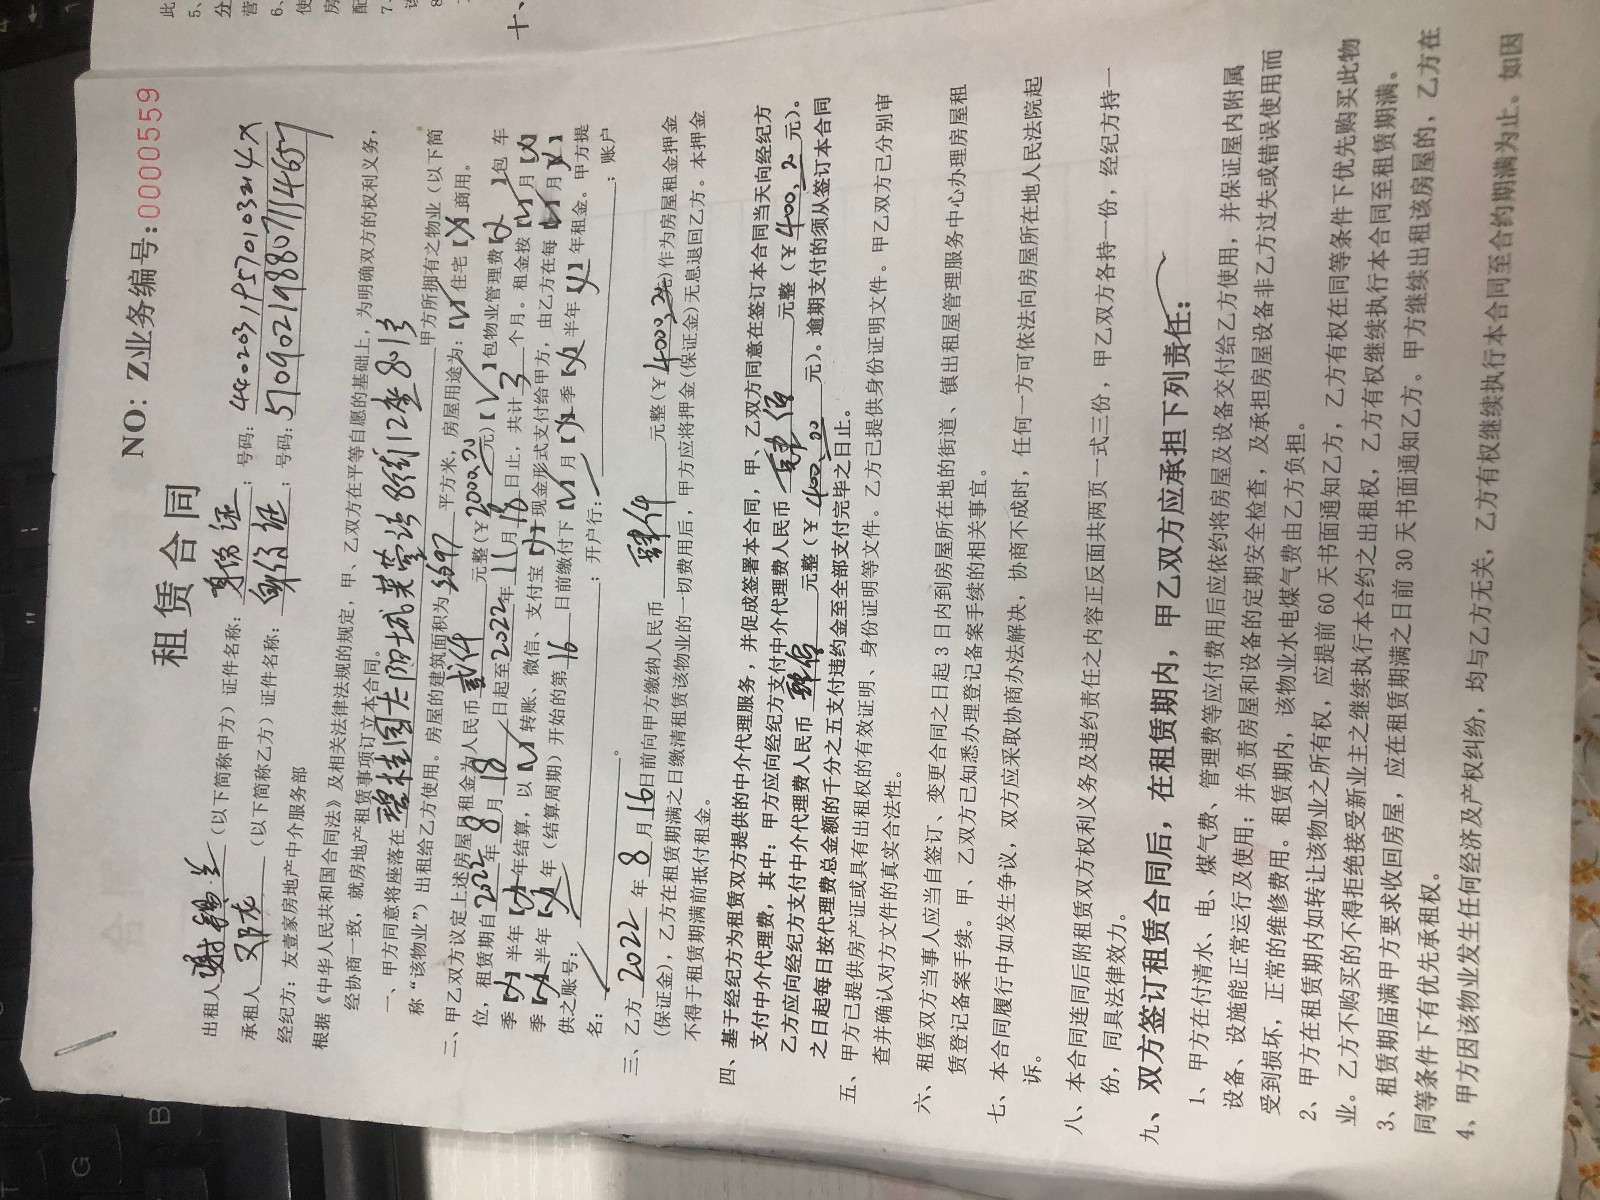 NO: Z业务编号:0000559
租赁合同
出租人谢锦兰(以下简称甲方)证件名称:身份证;号码:
承租人邓龙(以下简称乙方)证件名称:身份证;号码:
经纪方:友壹家房地产中介服务部
根据《中华人民共和国合同法》及相关法律法规的规定,甲、乙双方在平等自愿的基础上,为明确双方的权利义务,
经协商一致,就房地产租赁事项订立本合同。
一、甲方同意将座落在碧桂园太阳城芙蓉湾8街12座801号甲方所拥有之物业(以下简
称“该物业”)出租给乙方使用。房屋的建筑面积为 平方米,房屋用途为:【√】住宅【X】商用。
二、甲乙双方议定上述房屋月租金为人民币贰仟元整(¥2000.00元)【√】包物业管理费【X】包 车
位,租赁期自2022年8月18日起至2022年11月18日止,共计3个月。租金按【√】月【X】
季【X】半年【X】年结算,以【√】转账、微信、支付宝【X】现金形式支付给甲方,由乙方在每【√】月【X】
季【X】半年【X】年(结算周期)开始的第16日前缴付下【√】月【X】季【X】半年【X】年租金。甲方提
供之账号: ;开户行: ;账户
名: 。
三、乙方2022年8月16日前向甲方缴纳人民币肆仟元整(¥4000.00元)作为房屋租金押金
(保证金),乙方在租赁期满之日缴清租赁该物业的一切费用后,甲方应将押金(保证金)无息退回乙方。本押金
不得于租赁期满前抵付租金。
四、基于经纪方为租赁双方提供的中介代理服务,并促成签署本合同,甲、乙双方同意在签订本合同当天向经纪方
支付中介代理费,其中:甲方应向经纪方支付中介代理费人民币肆佰元整(¥400.00元)。
乙方应向经纪方支付中介代理费人民币肆佰元整(¥400.00元)。逾期支付的须从签订本合同
之日起每日按代理费总金额的千分之五支付违约金至全部支付完毕之日止。
五、甲方已提供房产证或具有出租权的有效证明、身份证明等文件。乙方已提供身份证明文件。甲乙双方已分别审
查并确认对方文件的真实合法性。
六、租赁双方当事人应当自签订、变更合同之日起3日内到房屋所在地的街道、镇出租屋管理服务中心办理房屋租
赁登记备案手续。甲、乙双方已知悉办理登记备案手续的相关事宜。
七、本合同履行中如发生争议,双方应采取协商办法解决,协商不成时,任何一方可依法向房屋所在地人民法院起
诉。
八、本合同连同后附租赁双方权利义务及违约责任之内容正反面共两页一式三份,甲乙双方各持一份,经纪方持一
份,同具法律效力。
九、双方签订租赁合同后,在租赁期内,甲乙双方应承担下列责任:
1、甲方在付清水、电、煤气费、管理费等应付费用后应依约将房屋及设备交付给乙方使用,并保证屋内附属
设备、设施能正常运行及使用;并负责房屋和设备的定期安全检查,及承担房屋设备非乙方过失或错误使用而
受到损坏,正常的维修费用。租赁期内,该物业水电煤气费由乙方负担。
2、甲方在租赁期内如转让该物业之所有权,应提前60天书面通知乙方,乙方有权在同等条件下优先购买此物
业。乙方不购买的不得拒绝接受新业主之继续执行本合约之出租权,乙方有权继续执行本合同至租赁期满。
3、租赁期届满甲方要求收回房屋,应在租赁期满之日前30天书面通知乙方。甲方继续出租该房屋的,乙方在
同等条件下有优先承租权。
4、甲方因该物业发生任何经济及产权纠纷,均与乙方无关,乙方有权继续执行本合同至合约期满为止。如因